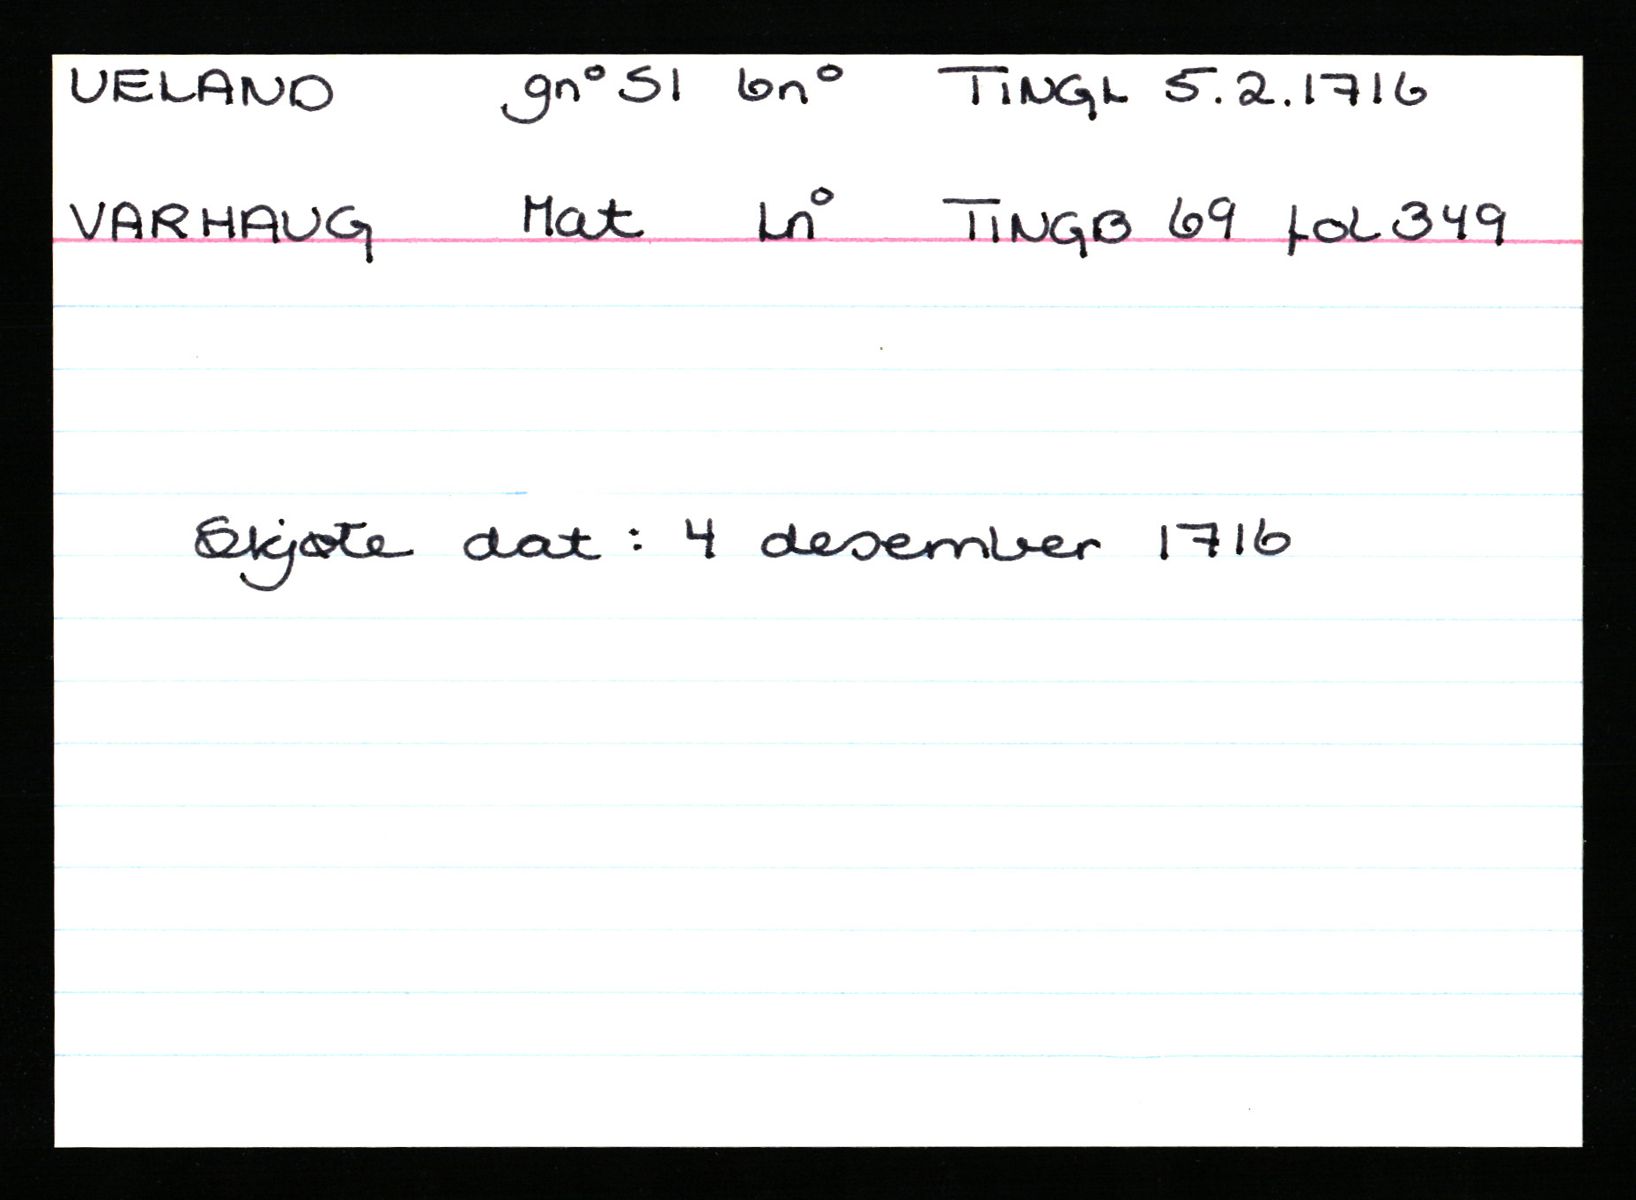 UELAND gn° 51 bn° TINGL 5.2.1716
VARHAUG Mat Ln° TINGB 69 fol 349
Skjøte dat: 4 desember 1716